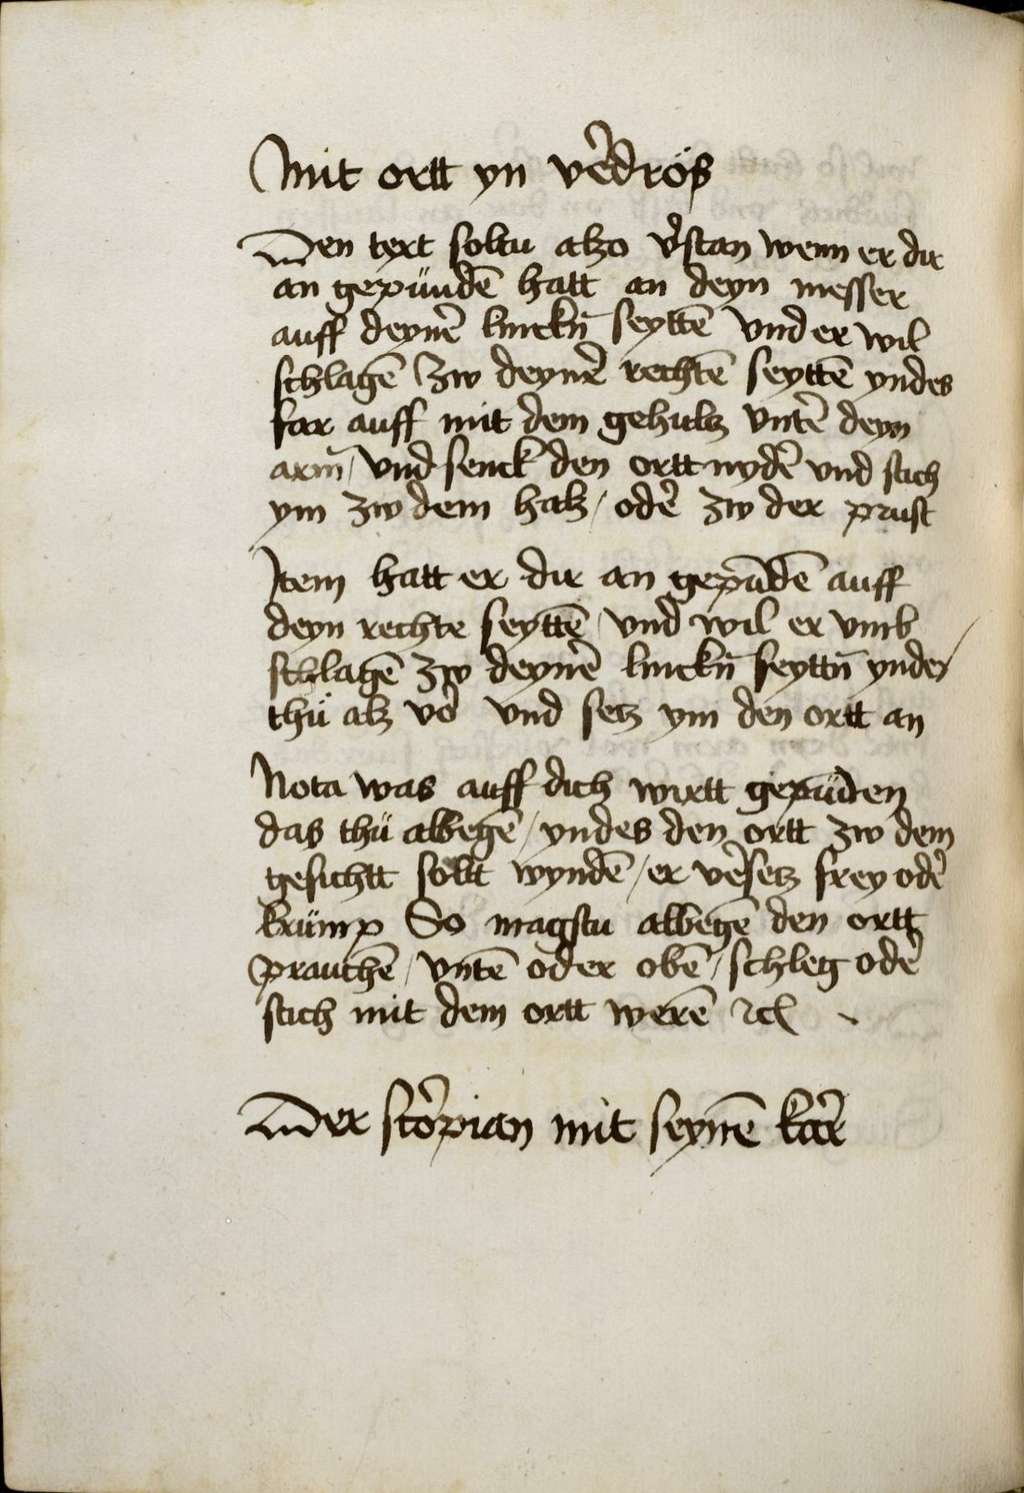 Mit ortt yn v̉edröß
Den text soltu alzo v̉stan wenn er dir
an gepündē hatt an deyn messer
auff deyn̉e linckn̄ seyttē Vnd er wil
schlagē Zw deyn̉e rechtē seyttē yndes
far auff mit dem gehultz vnt̉e deyn
arm̄ / Vnd senck den ortt nyd̉e vnd stich
ym zw dem halz / od̉e zw der prust
Item hatt er dir an gepūdē auff
deyn rechte seyttē / vnd wil er vmb
schlagē zw deyn̉e linckn̄ seyttn̄ yndes
thü alz vỏ vnd setz ym den ortt an
Nota was auff dich wirtt gepūden
das thü albegē / yndes den ortt zw dem
gesichtt sollt wyndē / er v̉esetz frey od̉e
krümp So magstu albegē den ortt
prauchē / vntē oder obē / schleg od̉e
stich mit dem ortt werē ⁊cͥ
Der scỏpian mit seynē kar̉